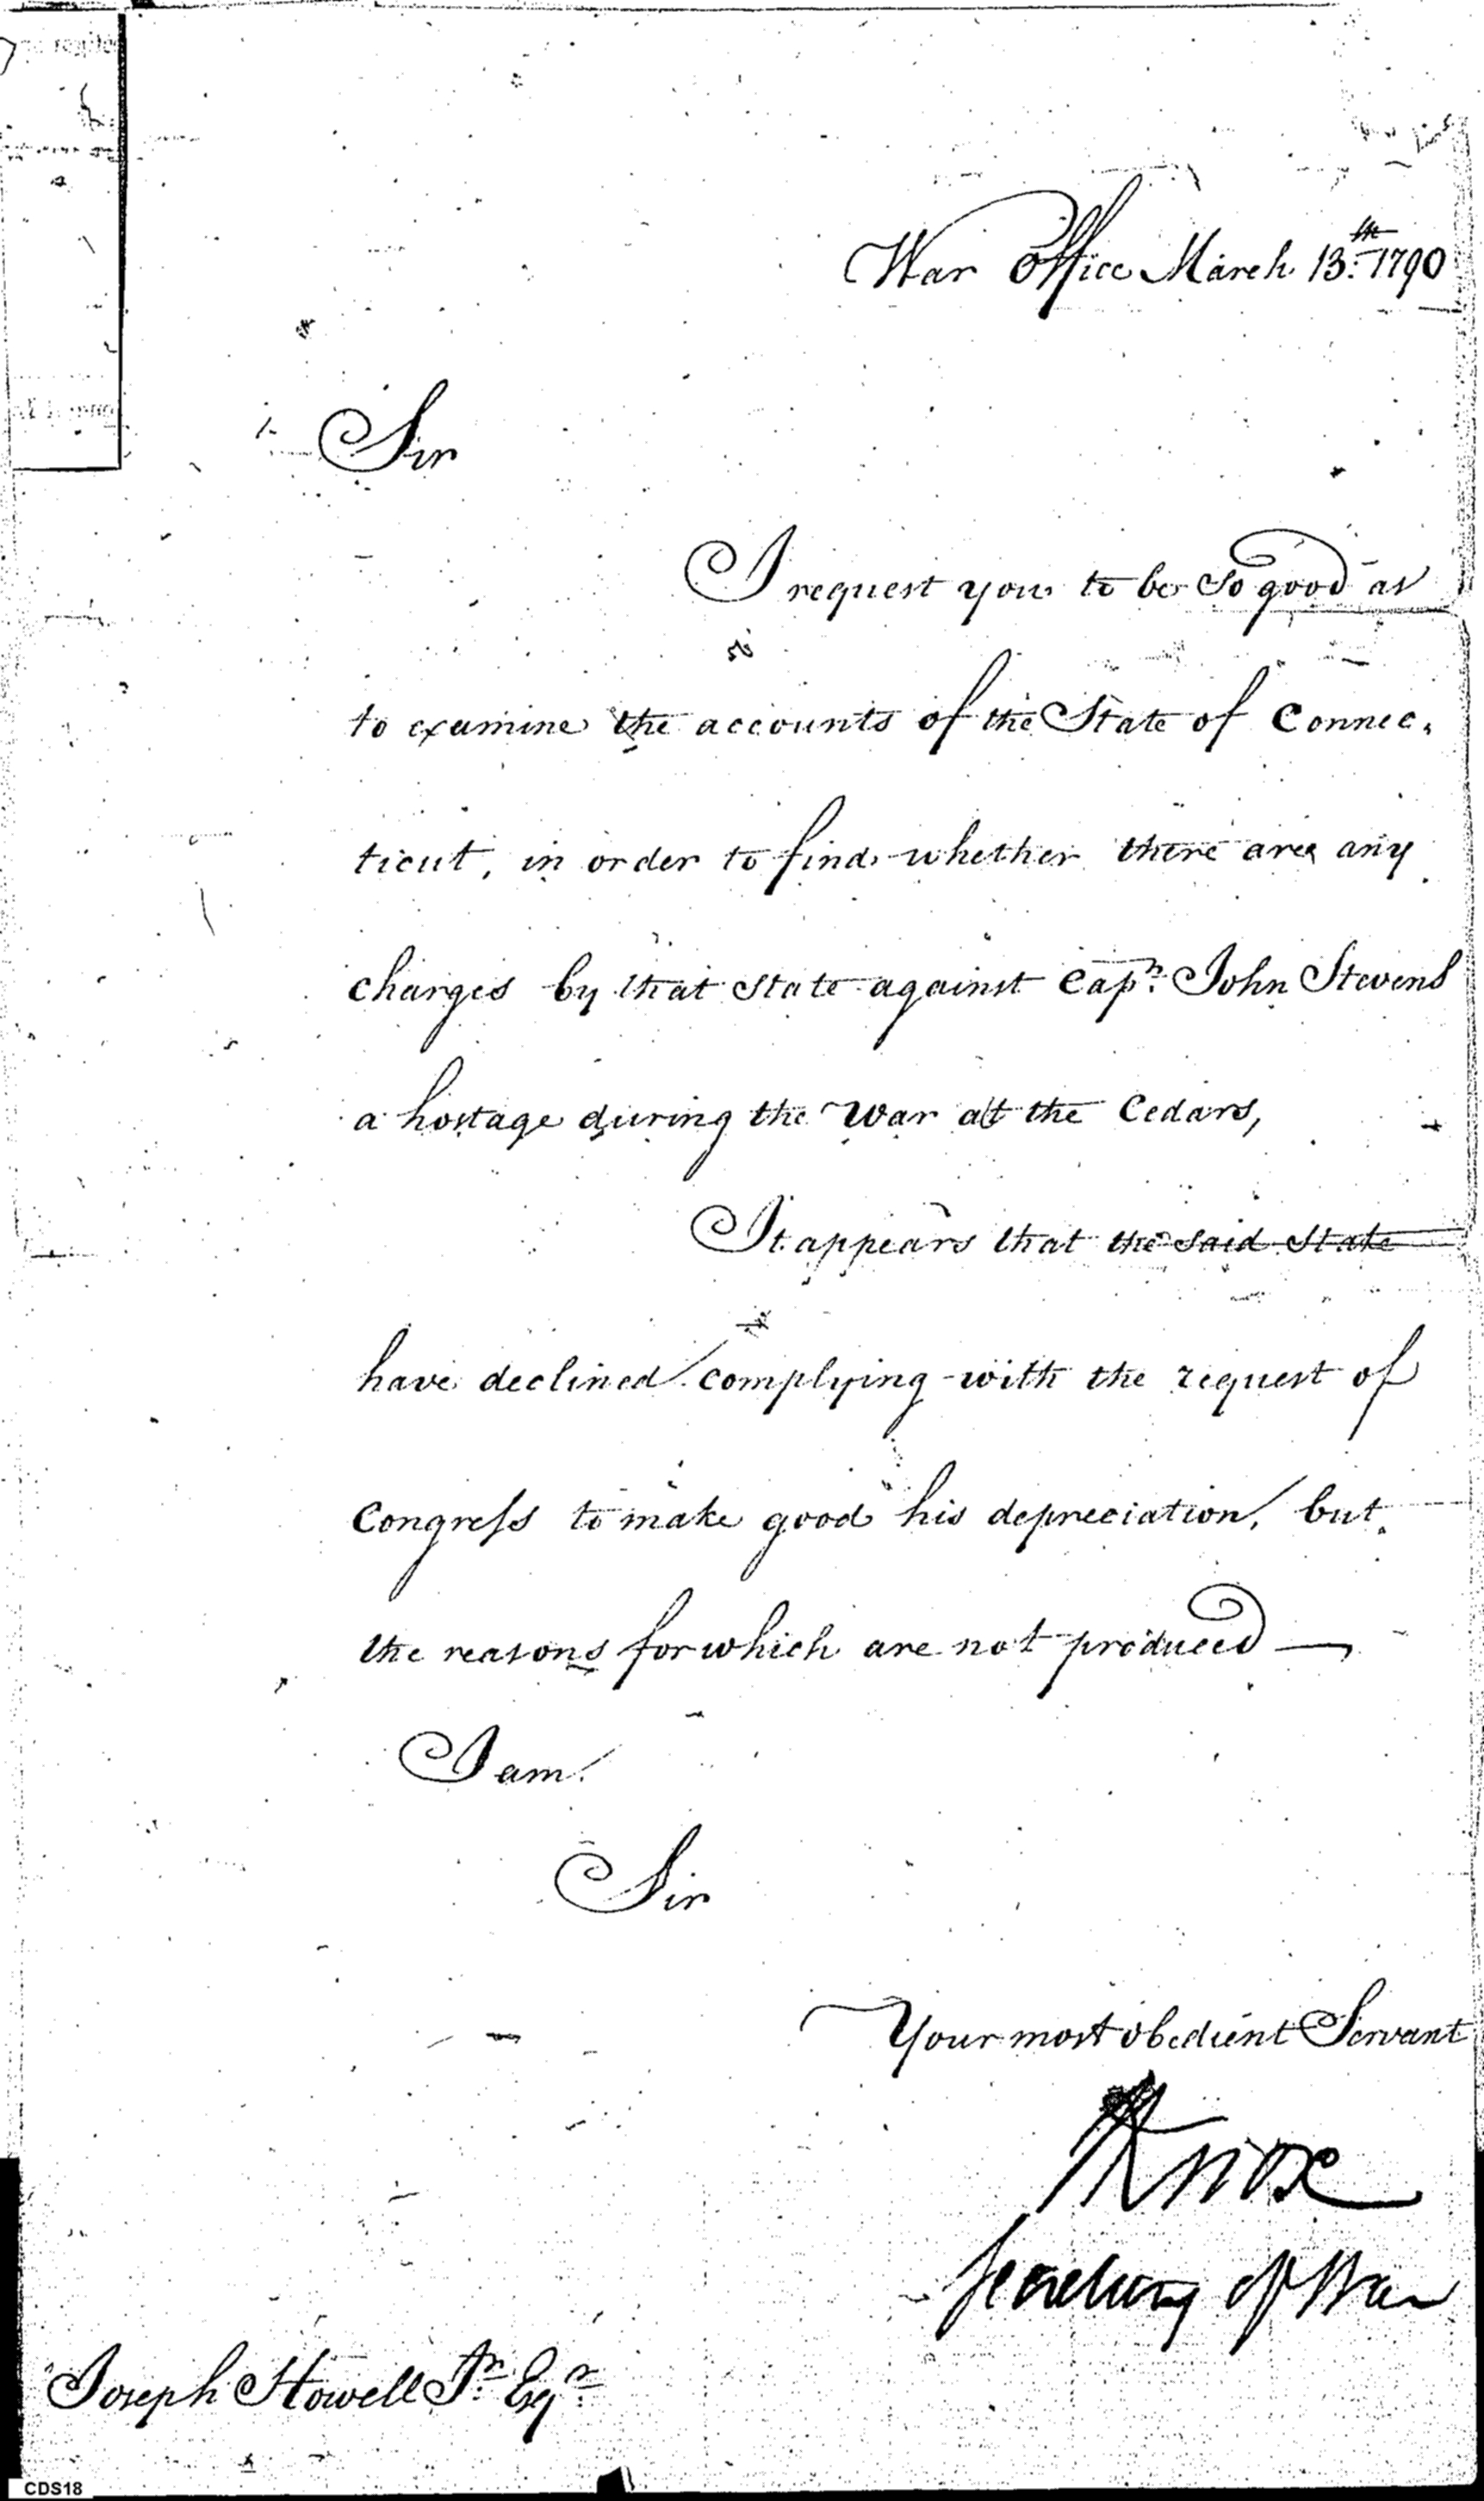 War Office March 13th 1790
Sir
I request you to be so good as
to examine the accounts of the State of Connec-
ticut, in order to find whether there are any
charges by that State against Capn. John Stevens
a hostage during the War at the Cedars,
It appears that the said State
have declined complying with the request of
Congress to make good his depreciation, but
the reasons for which are not produced —
I am.
Sir
Your most obedient Servant
HKnox
Secretary of War
Joseph Howell Jr. Esqr.
CDS18